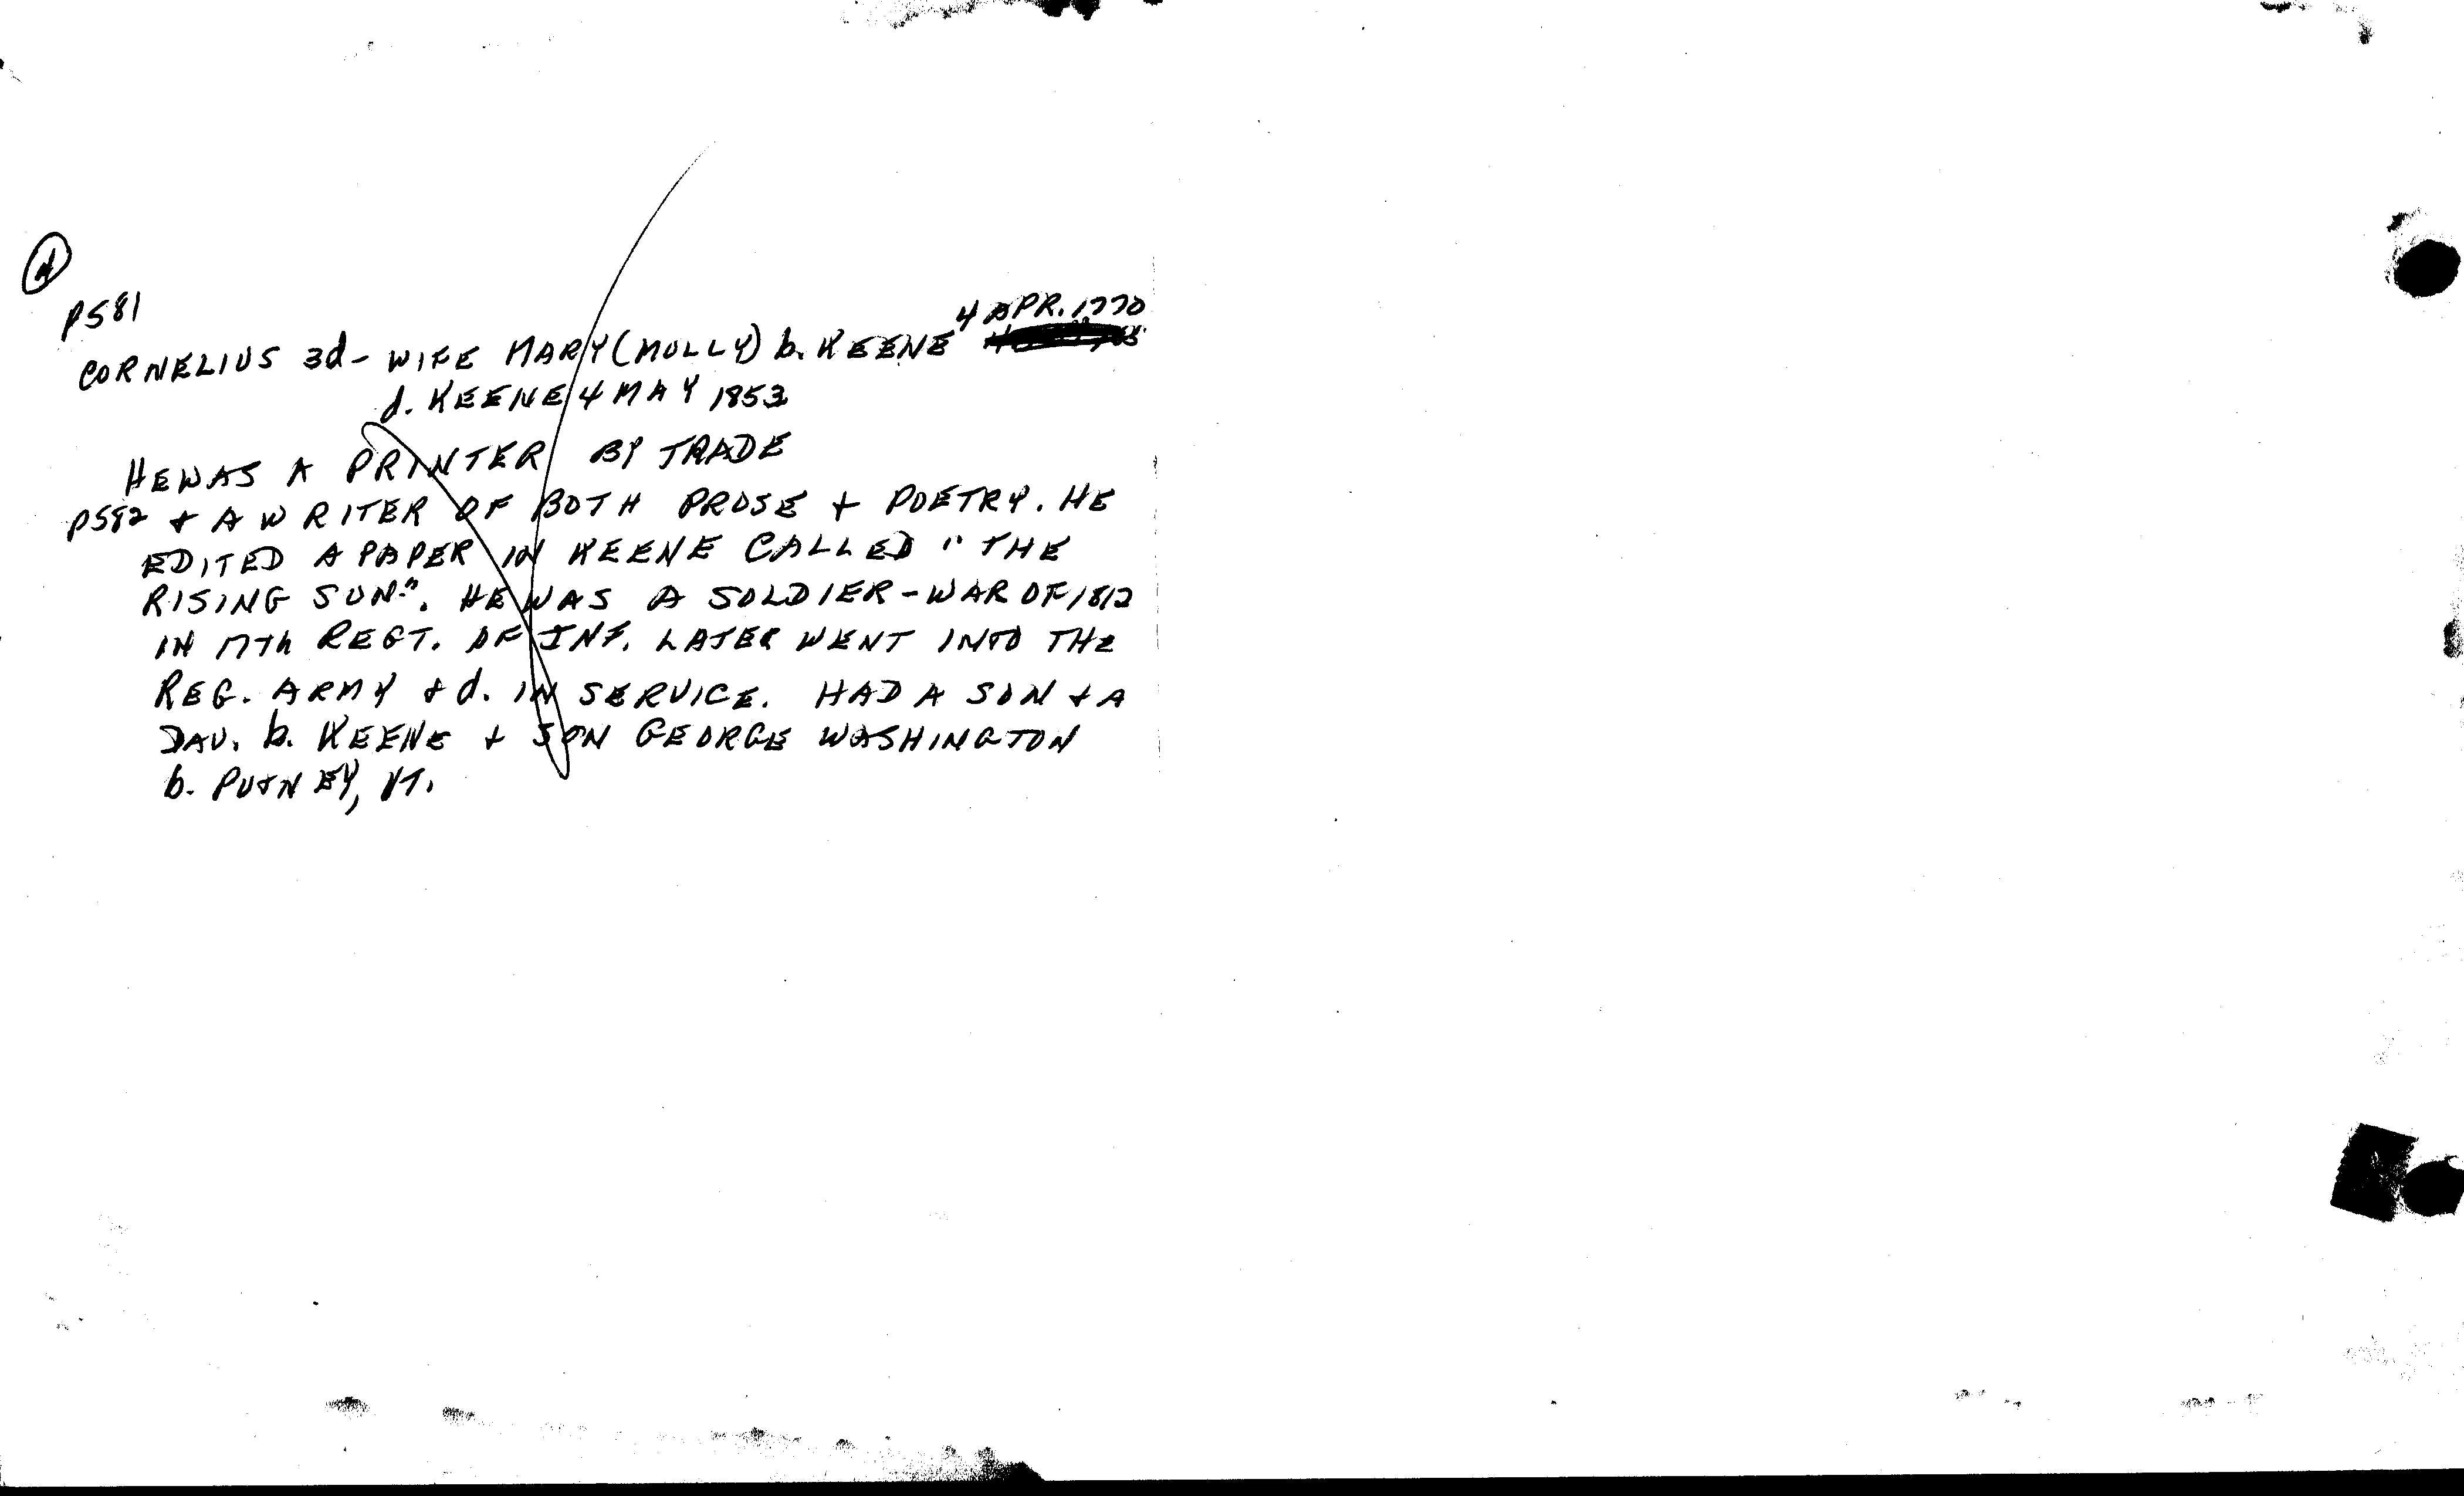 P581
4 APR. 1770
CORNELIUS 3d - WIFE MARY (MOLLY) b. KEENE
d. KEENE 4 MAY 1853
HE WAS A PRINTER BY TRADE
P582 + A WRITER OF BOTH PROSE + POETRY. HE
EDITED A PAPER IN KEENE CALLED "THE
RISING SUN". HE WAS A SOLDIER - WAR OF 1812
IN 17Th REGT. OF INF. LATER WENT INTO THE
REG. ARMY + d. IN SERVICE. HAD A SON + A
DAU. b. KEENE + SON GEORGE WASHINGTON
b. PUTNEY, VT.